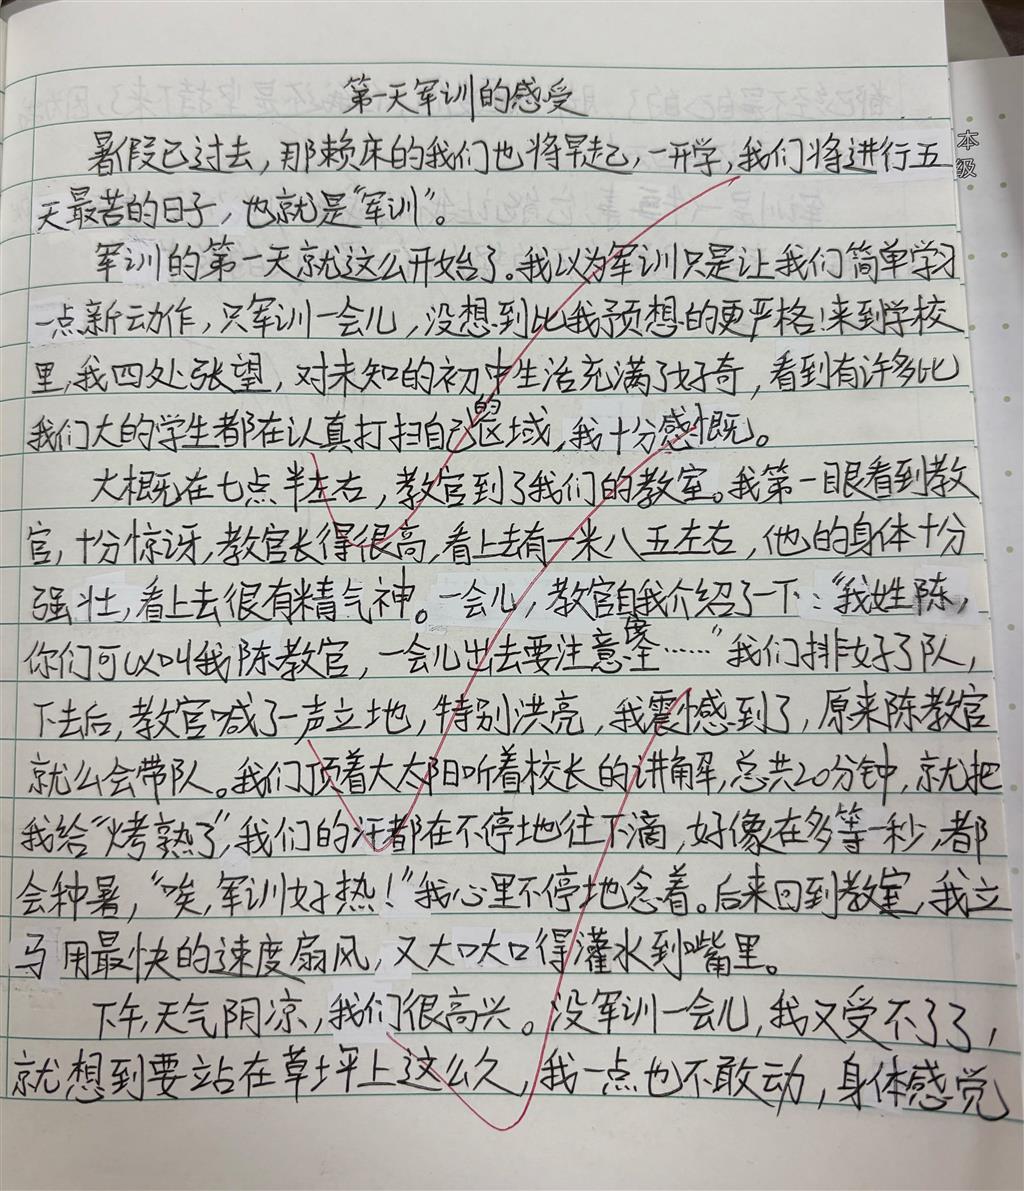 第一天军训的感受
暑假已过去，那赖床的我们也将早起，一开学，我们将进行五
天最苦的日子，也就是“军训”。
军训的第一天就这么开始了。我以为军训只是让我们简单学习
一点新动作，只军训一会儿，没想到比我预想的更严格！来到学校
里，我四处张望，对未知的初中生活充满了好奇，看到有许多比
我们大的学生都在认真打扫自己的区域，我十分感慨。
大概在七点半左右，教官到了我们的教室。我第一眼看到教
官，十分惊讶，教官长得很高，看上去有一米八五左右，他的身体十分
强壮，看上去很有精气神。一会儿，教官自我介绍了一下：“我姓陈，
你们可以叫我陈教官，一会儿出去要注意安全……”我们排好了队，
下去后，教官喊了一声立地，特别洪亮，我震憾感到了，原来陈教官
就么会带队。我们顶着大太阳听着校长的讲解，总共20分钟，就把
我给“烤熟了”，我们的汗都在不停地往下滴，好像在多等一秒，都
会种暑，“唉，军训好热！”我心里不停地念着。后来回到教室，我立
马用最快的速度扇风，又大口大口得灌水到嘴里。
下午，天气阴凉，我们很高兴。没军训一会儿，我又受不了了，
就想到要站在草坪上这么久，我一点也不敢动，身体感觉
本
级